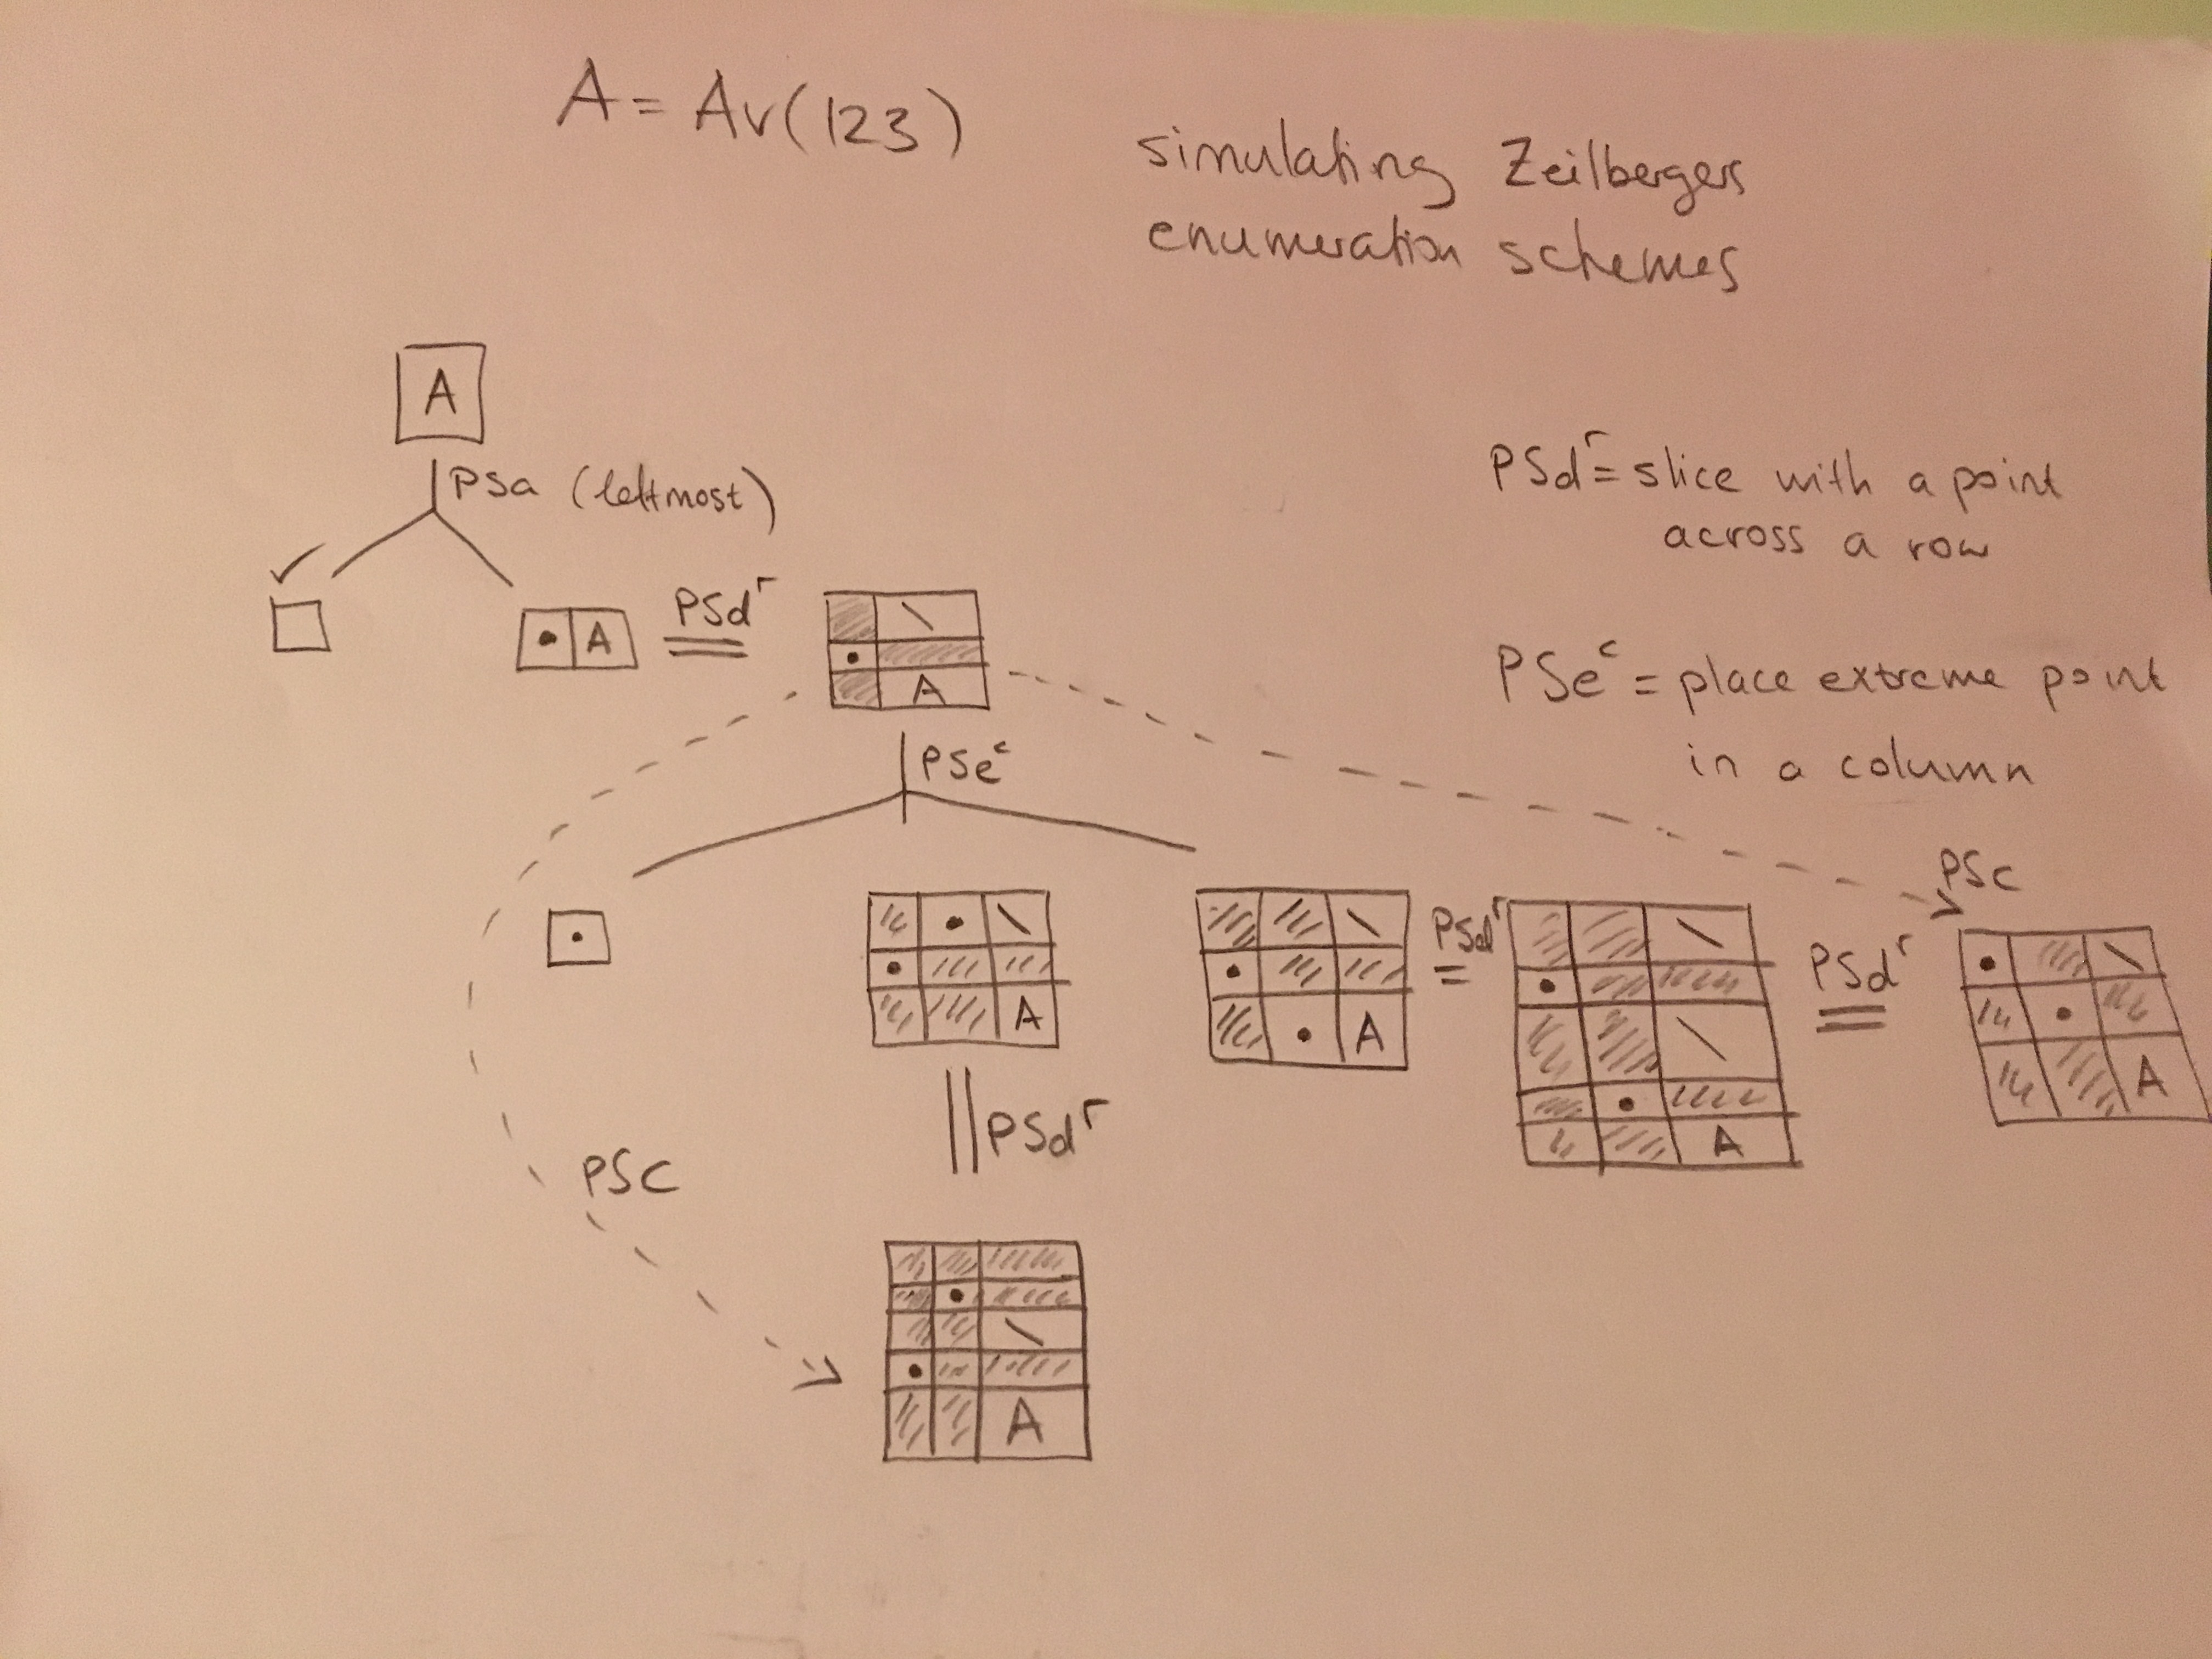 A = Av(123)
simulating Zeilbergers
enumeration schemes
A
PSa (leftmost)
A
PSdʳ
A
PSdʳ = slice with a point
across a row
PSeᶜ = place extreme point
in a column
PSeᶜ
PSc
A
A
PSdʳ
A
PSdʳ
A
PSdʳ
PSc
A